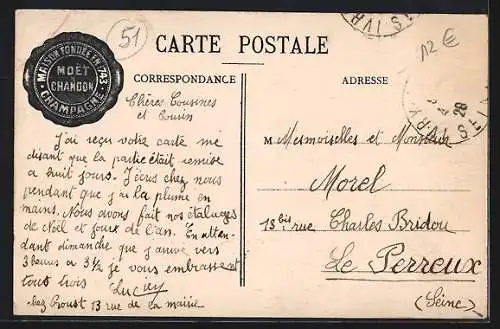 51
12 €
CARTE POSTALE
MAISON FONDÉE EN 1743
MOËT
&
CHANDON
CHAMPAGNE
CORRESPONDANCE
ADRESSE
Chères Cousines
et Cousin
J'ai reçu votre carte me
disant que la partie était remise
a huit jours. J'écris chez nous
pendant que j'ai la plume en
mains. Nous avons fait nos étalages
de Noël et jour de l'an. En atten-
dant dimanche que j'arrive vers
3 heures a 3 ½ je vous embrassent
tous trois
Lucy
chez Proust 13 rue de la mairie
M Mesmoiselles et Monsieur
Morel
13 bis rue Charles Bridou
Le Perreux
(Seine)
28